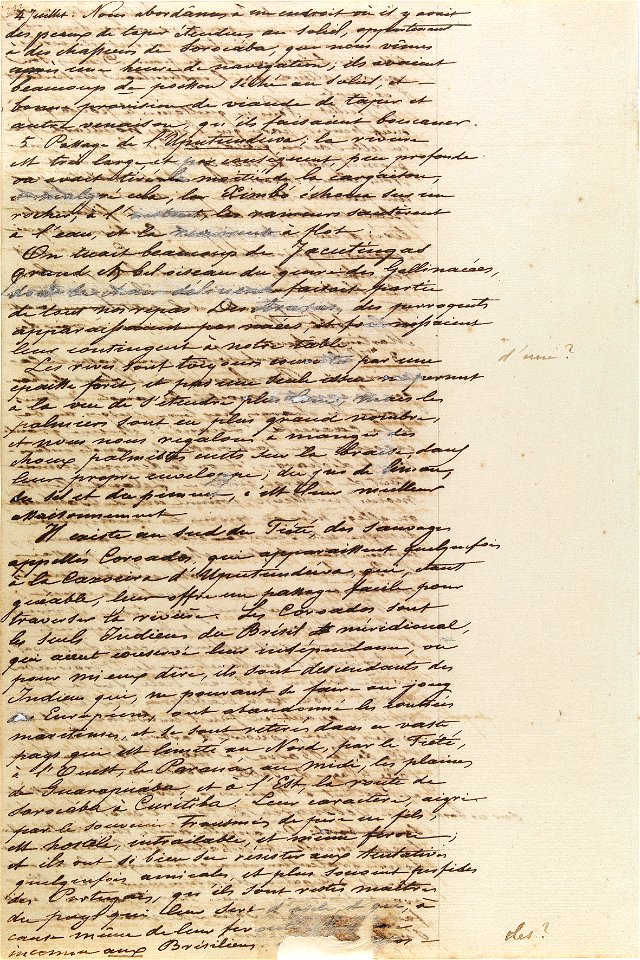 4 Juillet. Nous abordâmes à un endroit où il y avait
des peaux de tapir étendues au soleil, appartenant
à des chasseurs de Sorocaba, que nous vîmes
après une heure de navigation; ils avaient
beaucoup de poisson séché au soleil, et
bonne provision de viande de tapir et
autre venaison, qu'ils faisaient boucaner.
5. Passage de l'Uputundiva, la rivière
est très large et par conséquent peu profonde:
on avait tiré la moitié de la cargaison,
malgré cela, la Ximbó échoua sur un
rocher, à l'instant, les rameurs sautèrent
à l'eau, et la à flot.
On tuait beaucoup de Jacutingas
grand & bel oiseau du genre des Gallinacées,
dont la chair délicieuse faisait partie
de tous nos repas. Des des perroquets
apparaissaient par nuées, et fournissaient
leur contingent à notre table.
Les rives sont toujours couvertes par une
épaisse forêt, et pas une seule ne permet
à la vue de s'étendre plus loin, mais les
palmiers sont en plus grand nombre,
et nous nous régalons à manger des
choux palmiste cuits sur la braise, dans
leur propre enveloppe; du jus de limons,
du sel et du piment, c'est leur meilleur
assaisonnement
Il existe au sud du Tiété, des sauvages
appellés Coroados, qui apparaissent quelquefois
à la Caxoeira d'Uputundiva, qui, étant
guéable, leur offre un passage facile pour
traverser la rivière. Les Coroados sont
les seuls Indiens du Brésil méridional,
qui aient conservé leur indépendance, ou
pour mieux dire, ils sont descendants des
Indiens qui, ne pouvant se faire au joug
Européen, ont abandonné les contrées
maritimes, et se sont retirés dans ce vaste
pays qui est limité au Nord, par le Tiété,
à l'Ouest, le Paraná, au midi, les plaines
de Guarapuába, et à l'Est, la route de
Sorocaba à Curitiba. Leur caractère, aigri
par le souvenir transmis, de père en fils,
est hostile, intraitable, et même féroce;
et ils ont si bien su résister aux tentatives
quelquefois amicales, et plus souvent perfides
des Portugais, qu'ils sont restés maîtres
du pays qui leur sert d'asile et qui, à
cause même de leur
inconnu aux Brésiliens
d'une?
des?